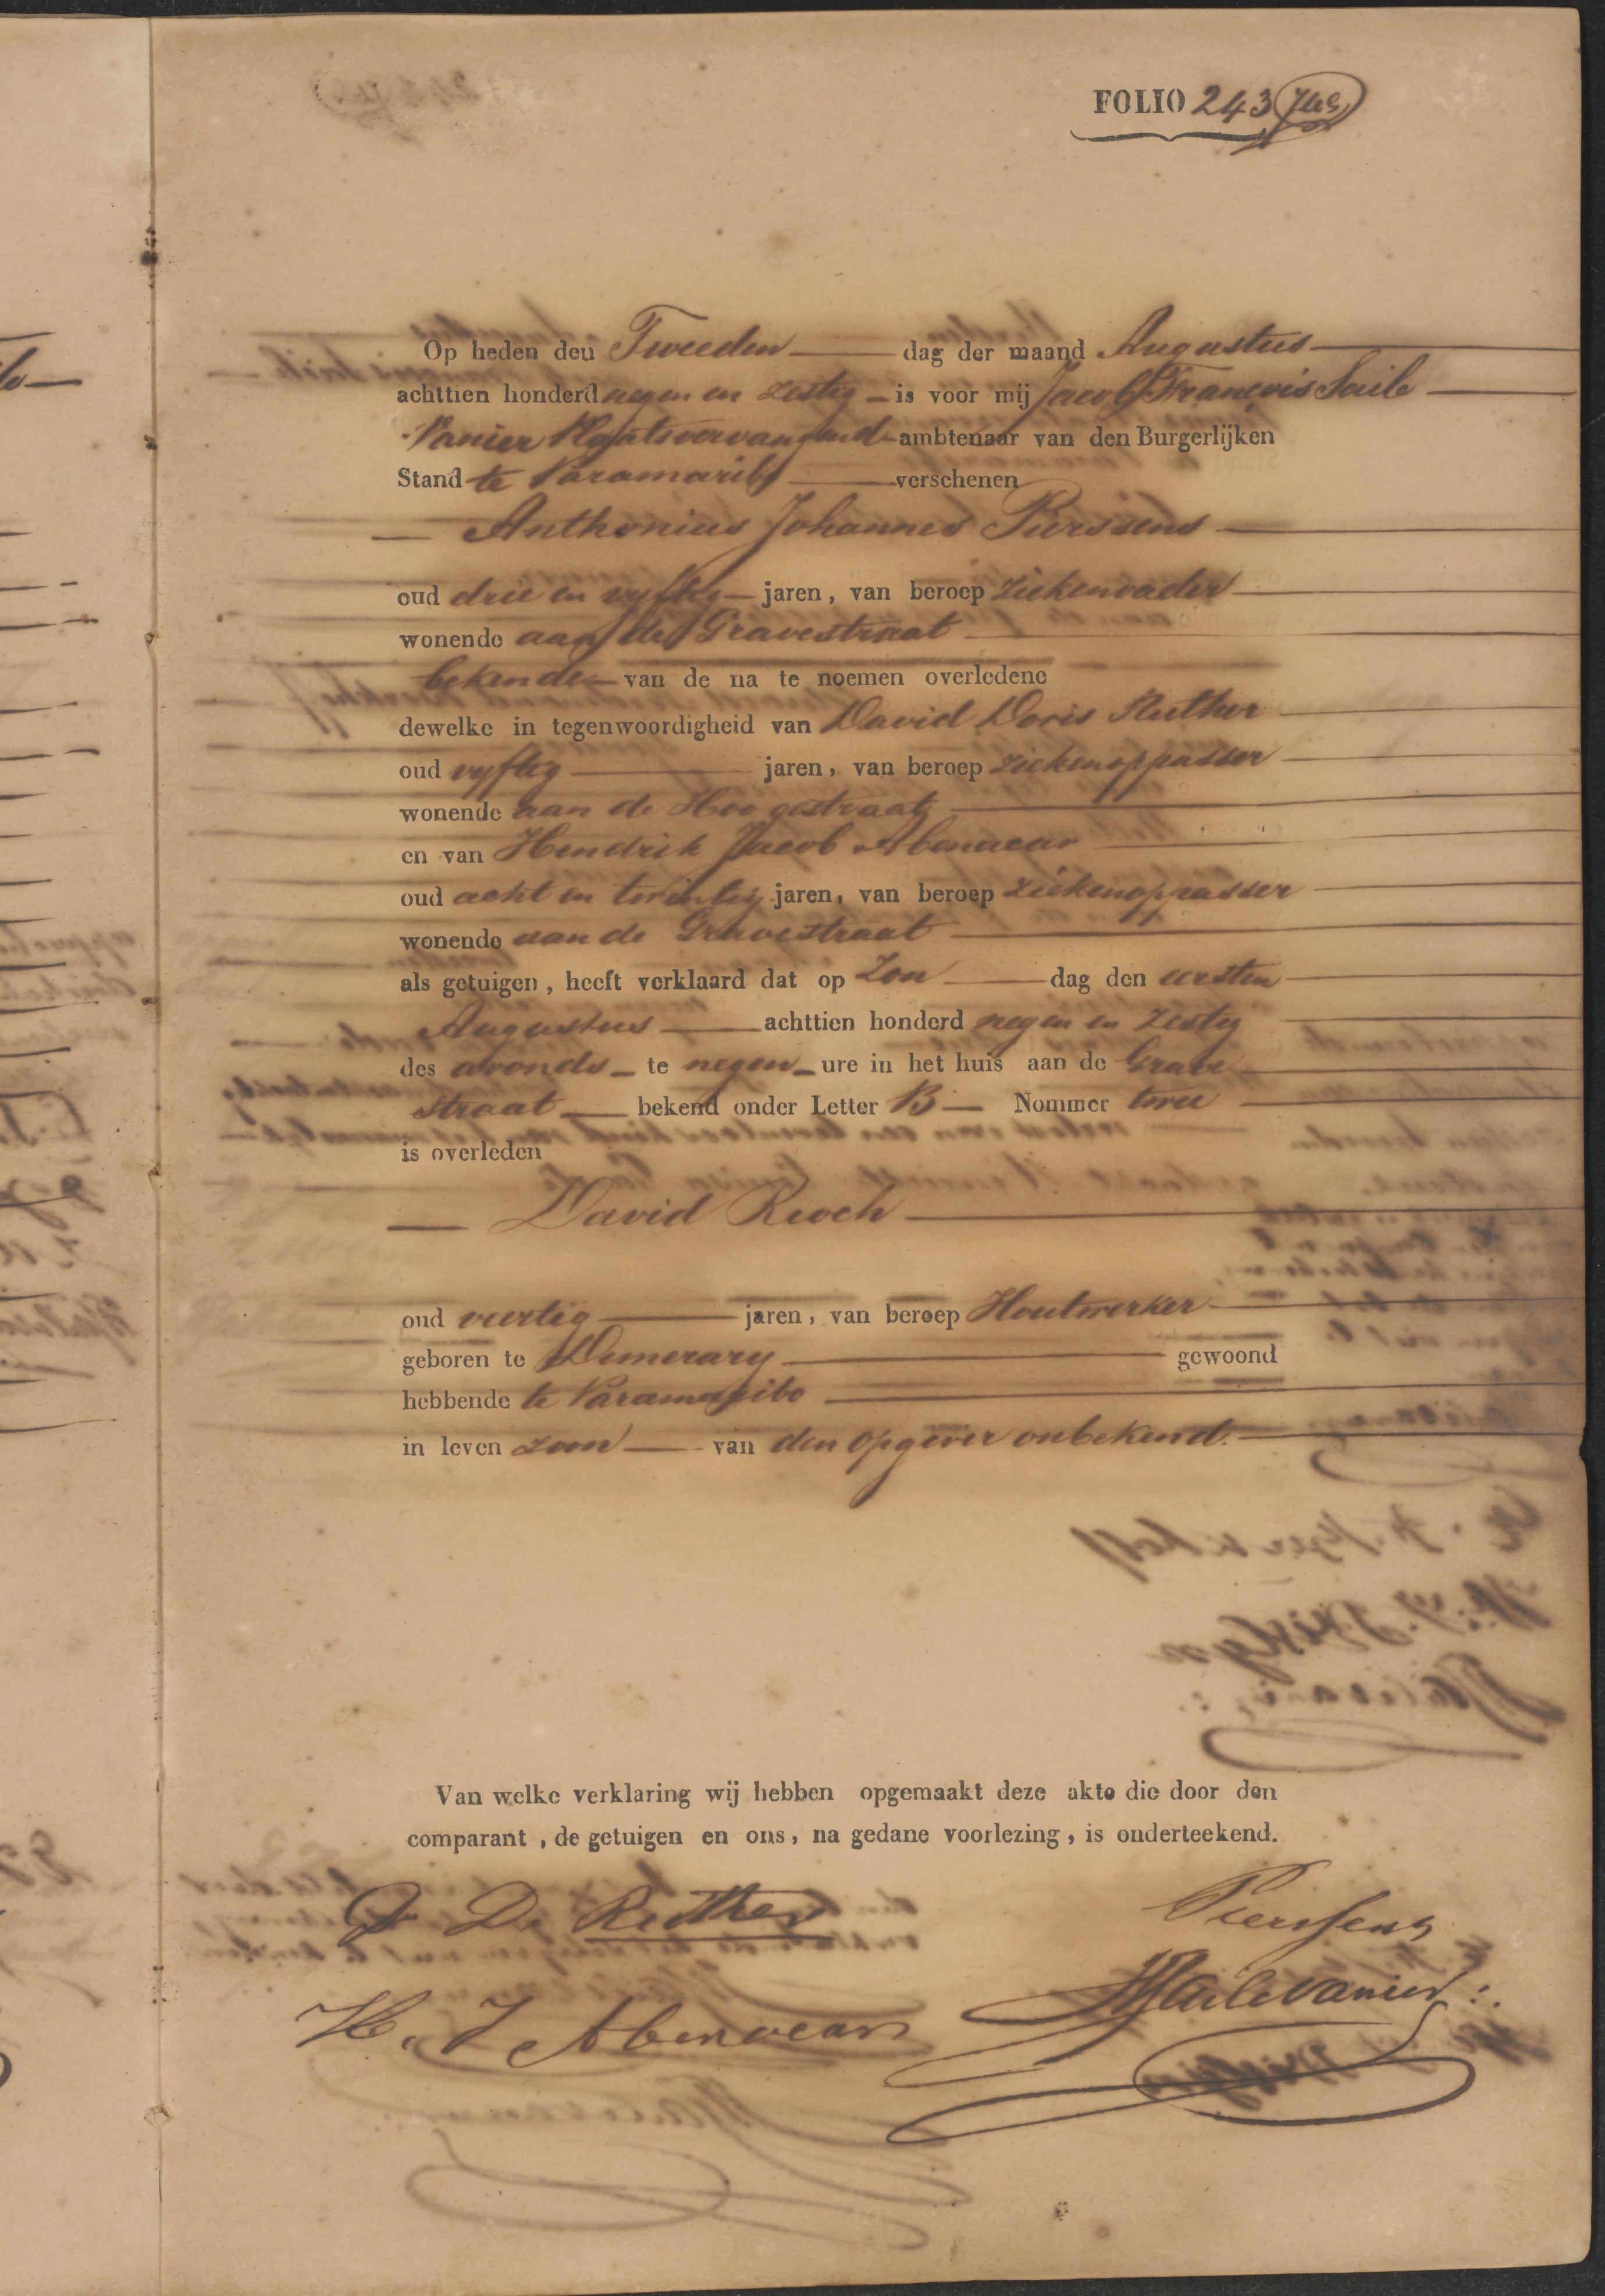 FOLIO 243
Op heden den Tweeden dag der maand Augustus
achttien honderd negen en zestig is voor mij Jacob François Saile
Vanier Plaatsvervangend ambtenaar van den Burgerlijken
Stand te Paramaribo verschenen
Anthonius Johannes Pierssens
oud drie en vyftig jaren, van beroep Ziekenvader
wonende aan de Gravestraat
bekende van de na te noemen overledene
dewelke in tegenwoordigheid van David Doris Ruther
oud vyftig jaren, van beroep Ziekenoppasser
wonende aan de Hoogestraat
en van Hendrik Jacob Abenacar
oud acht en twintig jaren, van beroep Ziekenoppasser
wonende aan de Gravestraat
als getuigen, heeft verklaard dat op Zon dag den eersten
Augustus achttien honderd negen en zestig
des avonds te negen ure in het huis aan de Grave
straat bekend onder Letter B Nommer twee
is overleden
David Reoch
oud veertig jaren, van beroep Houtwerker
geboren te Demerary gewoond
hebbende te Paramaribo
in leven zoon van den opgever onbekend.
Van welke verklaring wij hebben opgemaakt deze akte die door den
comparant, de getuigen en ons, na gedane voorlezing, is onderteekend.
D. D. Ruther Pierssens
H. J. Abenacar JFSailevanier